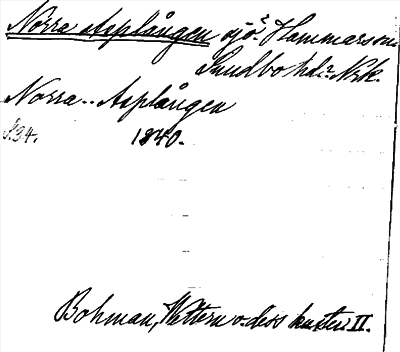 Norra Asplången sjö i Hammarson
Sundbo hd i Nrk.
Norra.. Asplången
s. 34. 1840.
Bohman, Wettern o. dess kuster II.